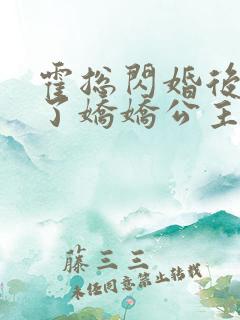 霍总閃婚後
了嬌嬌公主
藤三三
未经同意禁止转载